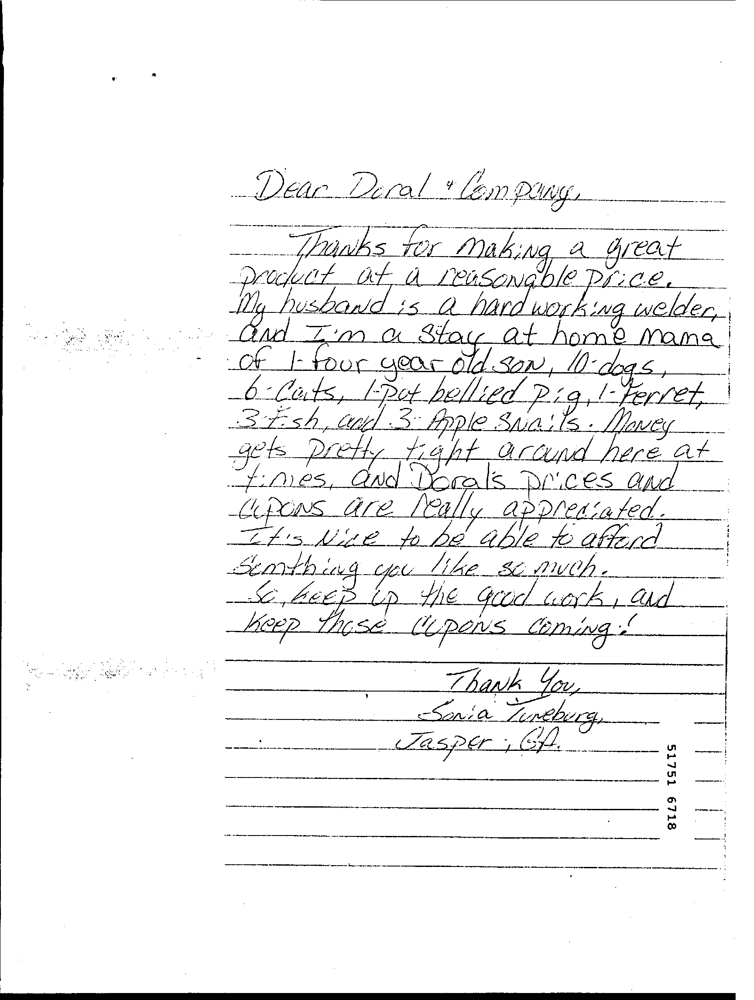 Dear Doral & Company,
Thanks for making a great
product at a reasonable price.
My husband is a hard working welder,
and I'm a stay at home mama
of 1-four year old son, 10-dogs,
6-Cats, 1-Pot bellied Pig, 1-Ferret,
3-Fish, and 3-Apple Snails. Money
gets pretty tight around here at
times, and Doral's prices and
cupons are really appreciated.
It's Nice to be able to afford
Somthing you like so much.
So, keep up the good work, and
Keep those cupons coming!
Thank You,
Sonia Tuneburg,
Jasper, GA.
51751 6718